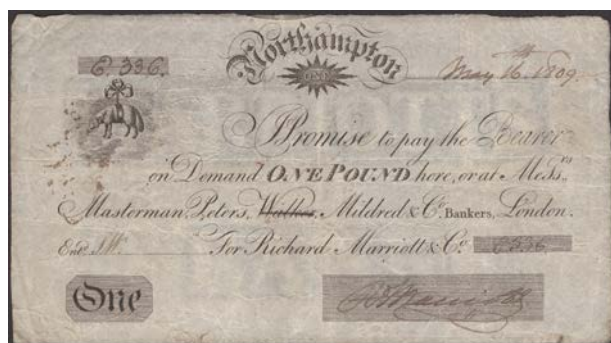 C.336. Northampton
ONE May 16th 1809
I Promise to pay the Bearer
on Demand ONE POUND here, or at Messrs
Masterman, Peters, Walker, Mildred & Co. Bankers, London.
Entd. For Richard Marriott & Co.
One